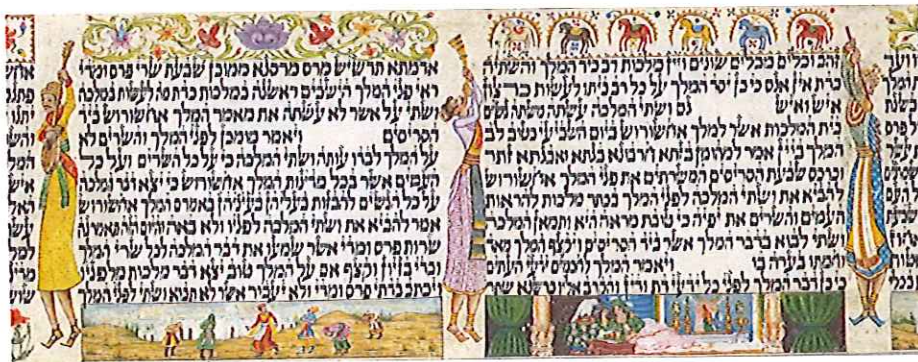 זהב וכלים מכלים שונים ויין מלכות רב כיד המלך והשתיה
כדת אין אנס כי כן יסד המלך על כל רב ביתו לעשות כרצון
איש ואיש גם ושתי המלכה עשתה משתה נשים
בית המלכות אשר למלך אחשורוש ביום השביעי כטוב לב
המלך ביין אמר למהומן בזתא חרבונא בגתא ואבגתא זתר
וכרכס שבעת הסריסים המשרתים את פני המלך אחשורוש
להביא את ושתי המלכה לפני המלך בכתר מלכות להראות
העמים והשרים את יפיה כי טובת מראה היא ותמאן המלכה
ושתי לבוא בדבר המלך אשר ביד הסריסים ויקצף המלך מאד
וחמתו בערה בו ויאמר המלך לחכמים ידעי העתים
כי כן דבר המלך לפני כל ידעי דת ודין והקרב אליו כרשנא שתר
אדמתא תרשיש מרס מרסנא ממוכן שבעת שרי פרס ומדי
ראי פני המלך הישבים ראשנה במלכות כדת מה לעשות במלכה
ושתי על אשר לא עשתה את מאמר המלך אחשורוש ביד
הסריסים ויאמר מומכן לפני המלך והשרים לא
על המלך לבדו עותה ושתי המלכה כי על כל השרים ועל כל
העמים אשר בכל מדינות המלך אחשורוש כי יצא דבר המלכה
על כל הנשים להבזות בעליהן בעיניהן באמרם המלך אחשורוש
אמר להביא את ושתי המלכה לפניו ולא באה והיום הזה תאמרנה
שרות פרס ומדי אשר שמעו את דבר המלכה לכל שרי המלך
וכדי בזיון וקצף אם על המלך טוב יצא דבר מלכות מלפניו
ויכתב בדתי פרס ומדי ולא יעבור אשר לא תבוא ושתי לפני המלך